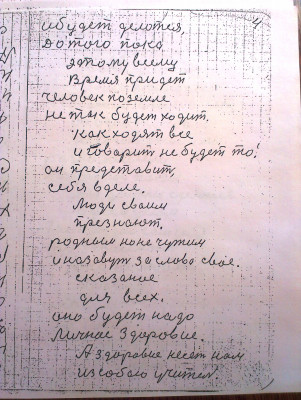 4
и будет делотся,
до того пока
этому всему
время придет
человек по земле
не так будет ходит.
как ходят все
и говарит не будет то!
он представит
себя в деле.
Люди своим
презнают.
родным но не чужим
и назавут за слово свое.
сказаное
для всех.
оно будет надо
Личнае Здоровие.
А здоровие несет нам
из собою учител